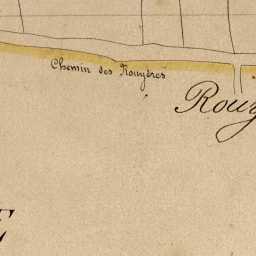 Chemin des Rouyères
Rouy